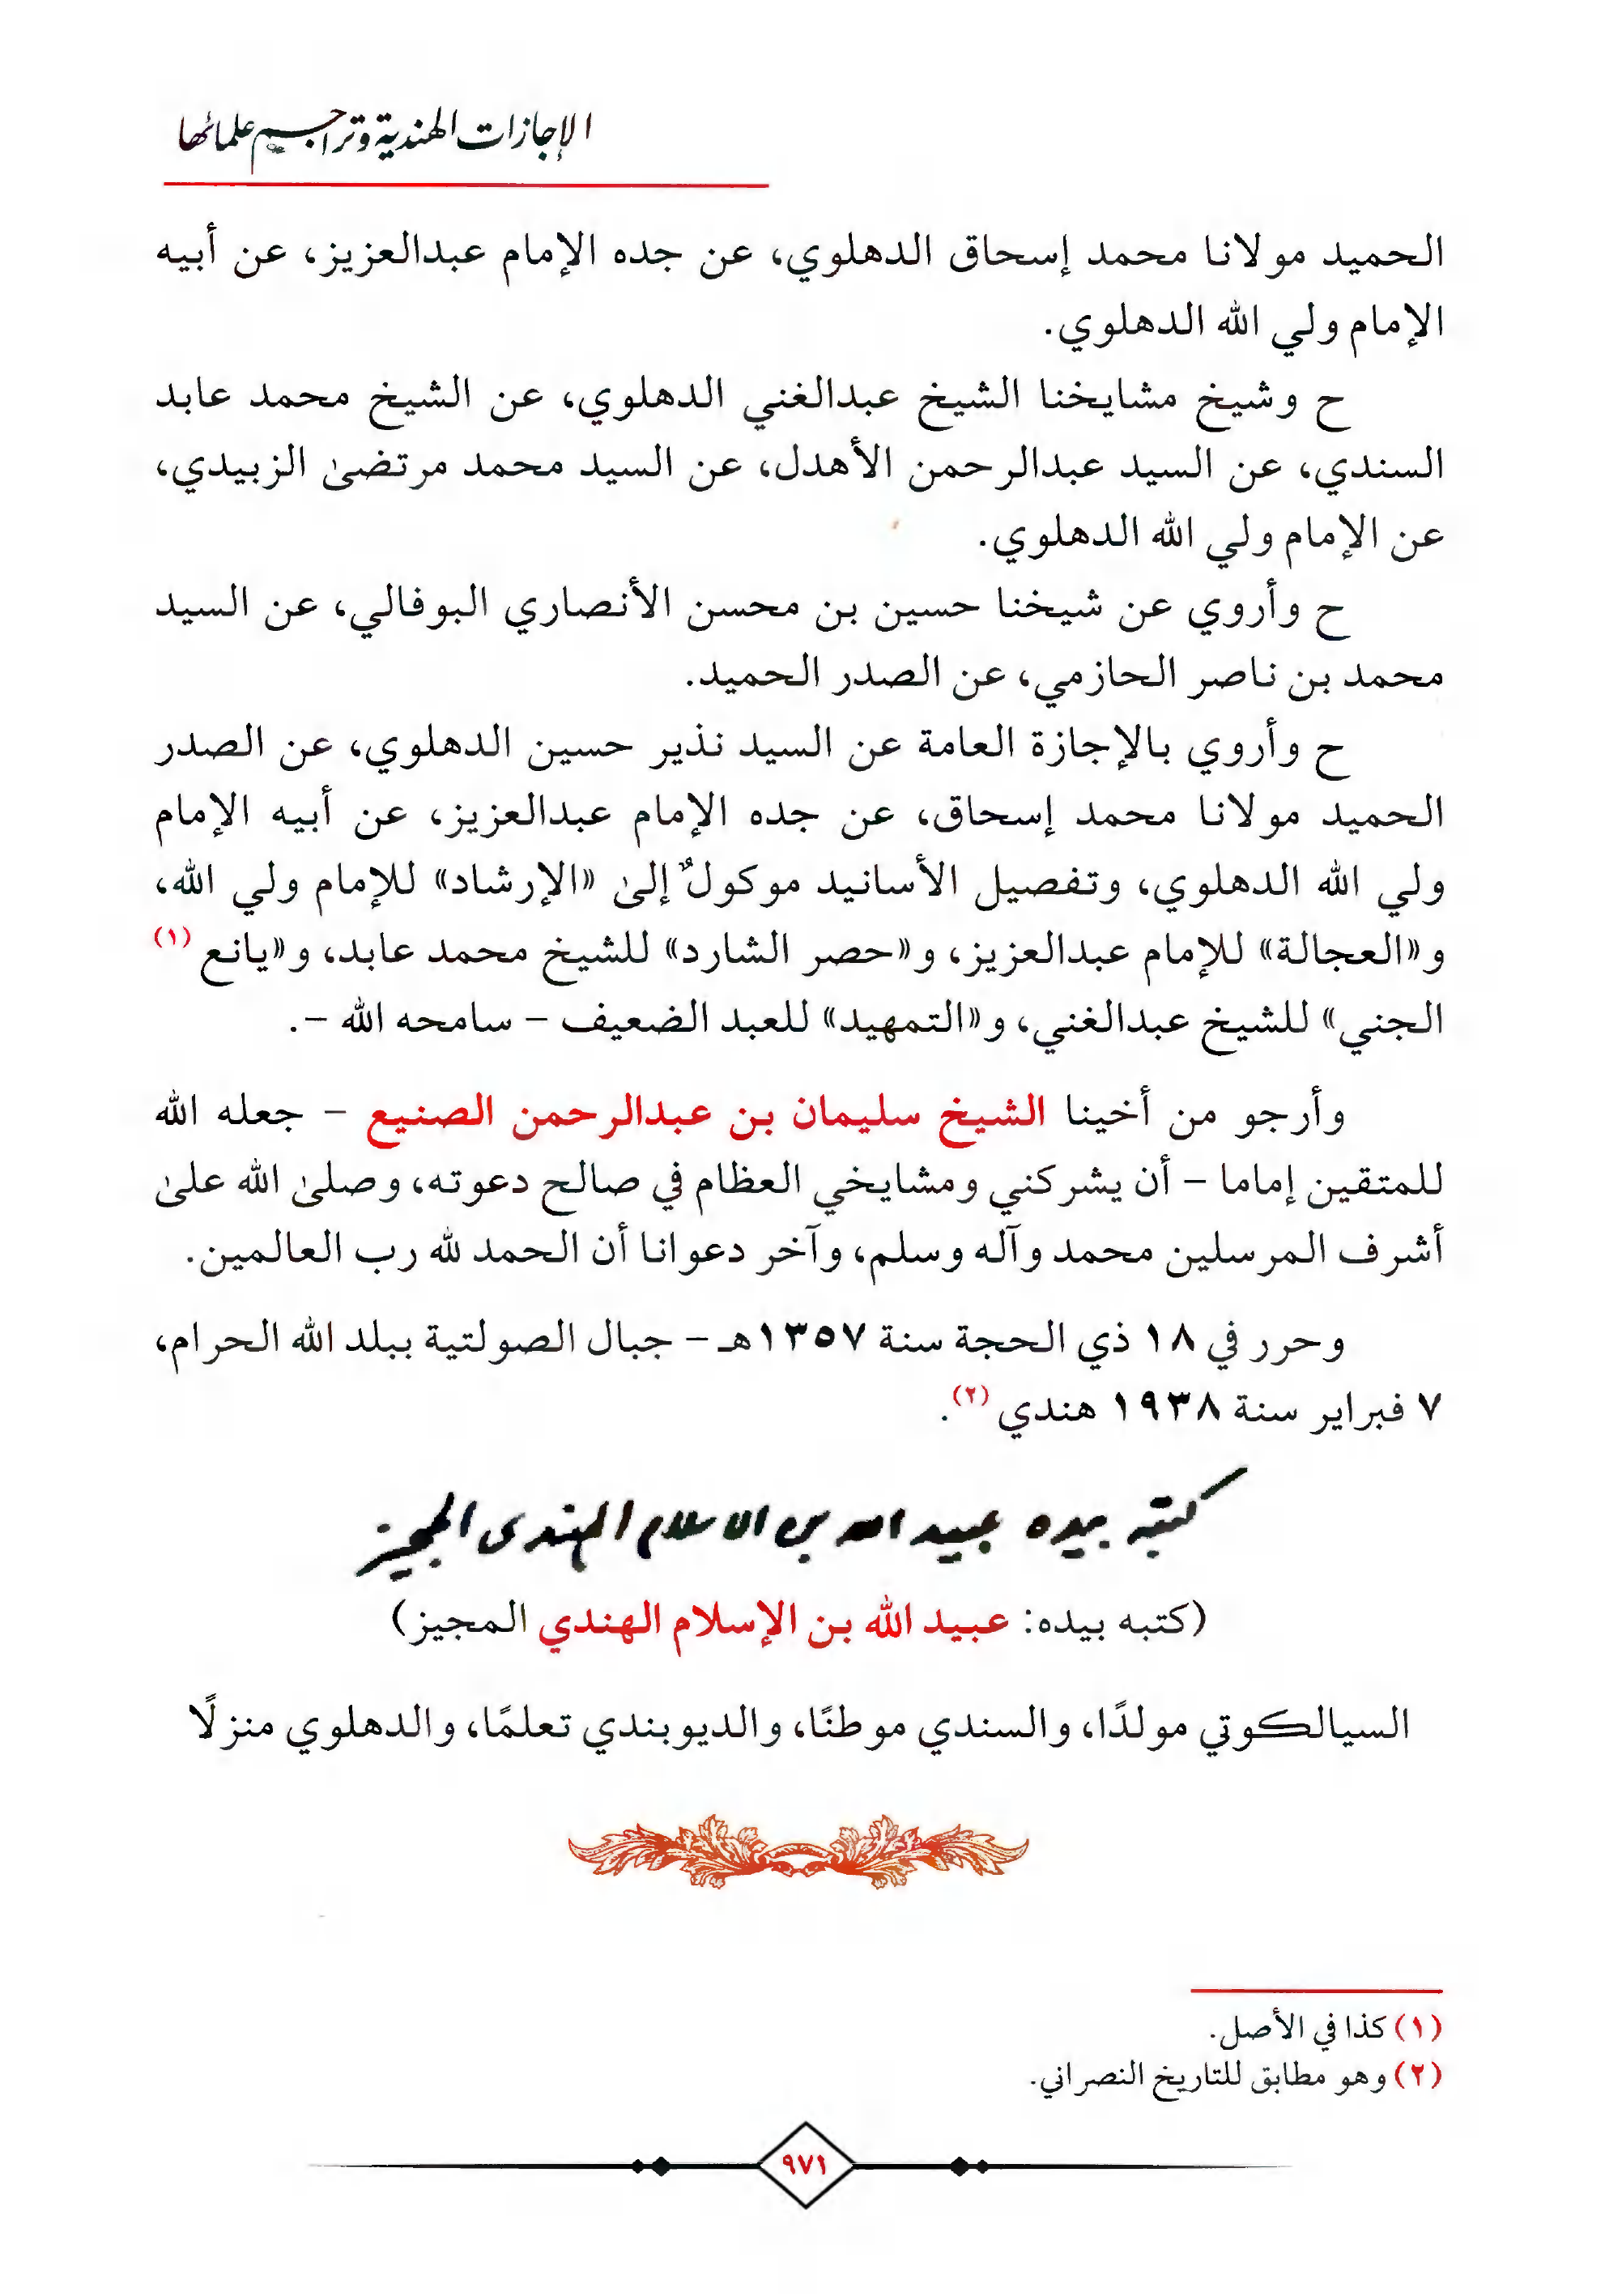 الإجازات الهندية وتراجيم علمائها
الحميد مولانا محمد إسحاق الدهلوي، عن جده الإمام عبدالعزيز، عن أبيه
الإمام ولي الله الدهلوي.
ح وشيخ مشايخنا الشيخ عبدالغني الدهلوي، عن الشيخ محمد عابد
السندي، عن السيد عبدالرحمن الأهدل، عن السيد محمد مرتضىٰ الزبيدي،
عن الإمام ولي الله الدهلوي.
ح وأروي عن شيخنا حسين بن محسن الأنصاري البوفالي، عن السيد
محمد بن ناصر الحازمي، عن الصدر الحميد.
ح وأروي بالإجازة العامة عن السيد نذير حسين الدهلوي، عن الصدر
الحميد مولانا محمد إسحاق، عن جده الإمام عبدالعزيز، عن أبيه الإمام
ولي الله الدهلوي، وتفصيل الأسانيد موكولٌ إلىٰ «الإرشاد» للإمام ولي الله،
و«العجالة» للإمام عبدالعزيز، و«حصر الشارد» للشيخ محمد عابد، و«يانع (١)
الجني» للشيخ عبدالغني، و«التمهيد» للعبد الضعيف – سامحه الله –.
وأرجو من أخينا الشيخ سليمان بن عبدالرحمن الصنيع – جعله الله
للمتقين إماما – أن يشركني ومشايخي العظام في صالح دعوته، وصلىٰ الله علىٰ
أشرف المرسلين محمد وآله وسلم، وآخر دعوانا أن الحمد لله رب العالمين.
وحرر في ١٨ ذي الحجة سنة ١٣٥٧هـ – جبال الصولتية ببلد الله الحرام،
٧ فبراير سنة ١٩٣٨ هندي (٢).
كتبه بيده عبيد الله بن الاسلام الهندى المجيز
(كتبه بيده: عبيد الله بن الإسلام الهندي المجيز)
السيالكوتي مولدًا، والسندي موطنًا، والديوبندي تعلمًا، والدهلوي منزلًا
(١) كذا في الأصل.
(٢) وهو مطابق للتاريخ النصراني.
٩٧١